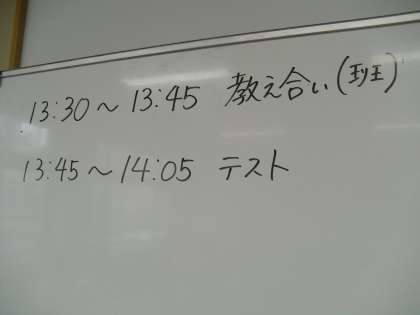 13:30～13:45 教え合い(班)
13:45～14:05 テスト